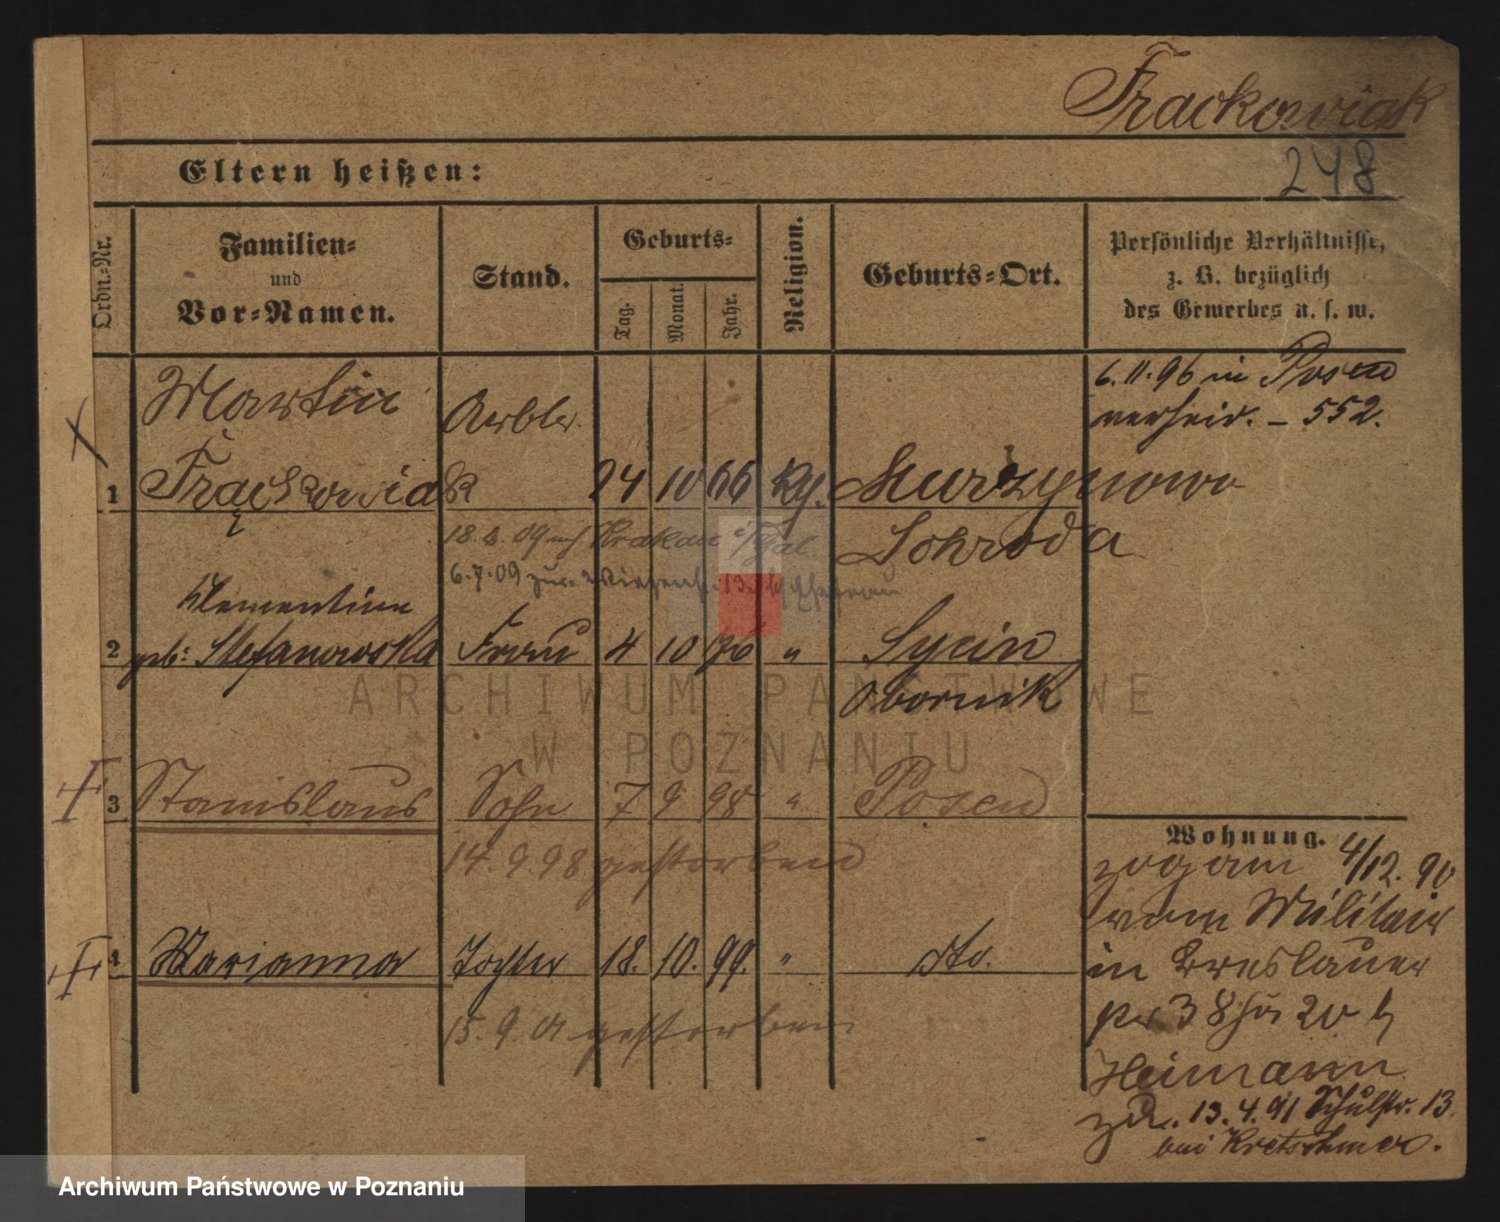 Frackowiak
248
Eltern heißen:
Ordn.-Nr.
Familien- und Vor-Namen.
Stand.
Geburts-
Tag.
Monat.
Jahr.
Religion.
Geburts-Ort.
Persönliche Verhältnisse,
z. B. bezüglich
des Gewerbes u. s. w.
6.11.96 in Posen
verheir. – 552.
Martin Arbtr.
1 Frąckowiak 24 10 66 Kth. Murzynowo
Schroda
18.3.09 Krakau i/Gal.
6.7.09 zur.
Klementine
2 geb: Stefanowska Frau 4 10 76 " Sycin
Obornik
3 Stanislaus Sohn 7 9 98 " Posen
14.9.98 gestorben
4 Marianna Tochter 18. 10. 99. " dto.
15.9.01 gestorben
Wohnung.
zog am 4/12. 90
vom Militair
in Breslauer
38 20 b
Heimann
zu. 13.4.91 Schulstr. 13
bei Kretschmer.
ARCHIWUM PAŃSTWOWE
W POZNANIU
Archiwum Państwowe w Poznaniu